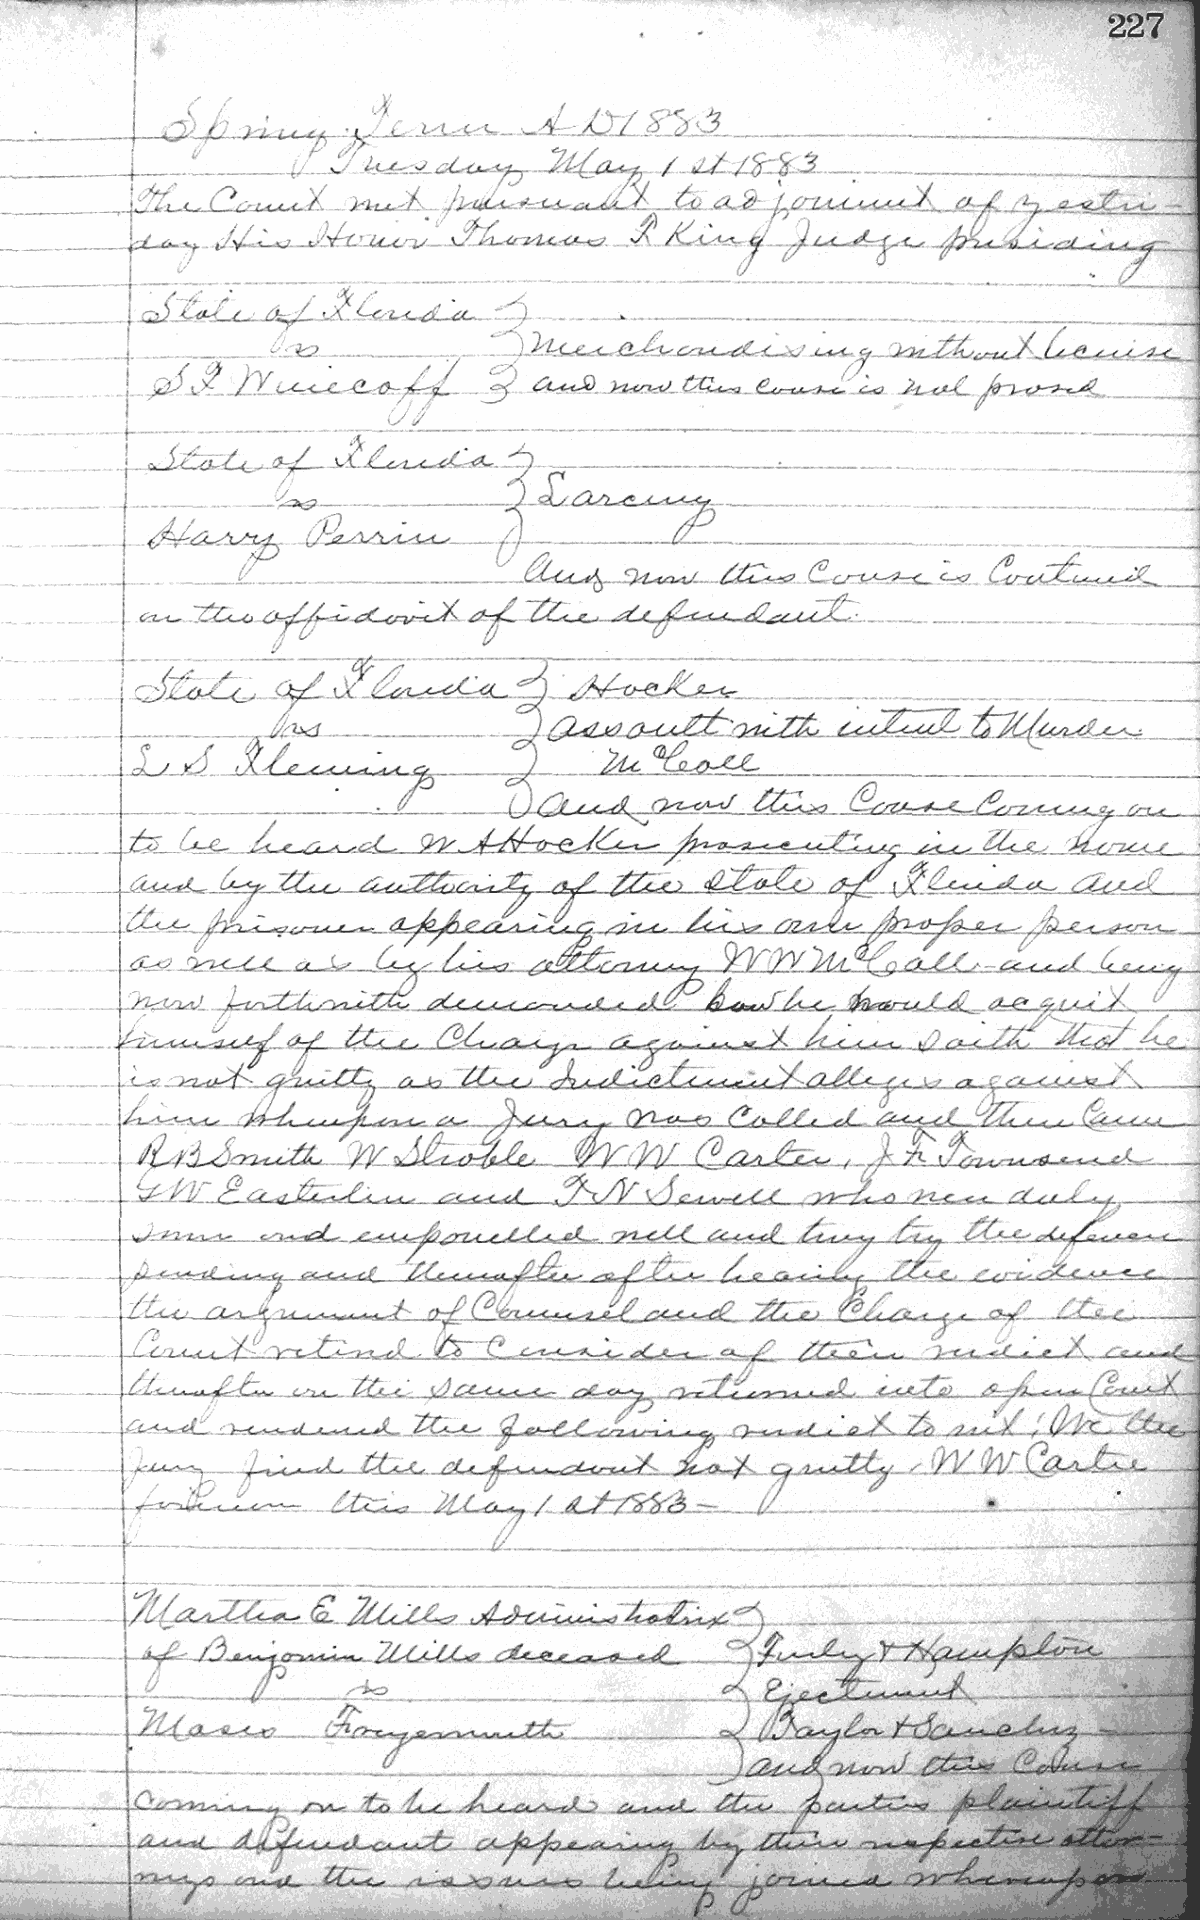 227
Spring Term A D 1883
Tuesday May 1st 1883
The Court met pursuant to adjournmt of yester-
day His Honor Thomas F King Judge presiding
State of Florida
vs
Merchandising without license
S F Winecoff and now this cause is nol prosed
State of Florida
vs
Larceny
Harry Perrin
And now this Cause is Continued
on the affidavit of the defendant.
State of Florida Hocker
vs assault with intent to Murder
L S Fleming McCall
and now this Cause Coming on
to be heard W A Hocker prosecuting in the name
and by the authority of the State of Florida and
the prisoner appearing in his own proper person
as well as by his attorney W W McCall and being
now forthwith demanded how he would acquit
himself of the Charge against him saith that he
is not guilty as the Indictment alleges against
him whereupon a Jury was Called and then Came
R B Smith W Stroble W W Carter, J F Townsend
G W Easterlin and F N Sewell who were duly
sworn and empanelled well and truly try the
sending and thereafter after hearing the evidence
the argument of Counsel and the Charge of the
Court retired to Consider of their verdict and
thereafter on the same day returned into open Court
and rendered the following verdict to wit: We the
Jury find the defendant not guilty. W W Carter
foreman this May 1st 1883 –
Martha E Mills Administratrix
of Benjamin Mills deceased Finley & Hampton
vs Ejectment
Moses Taylor & Sanchez –
and now this Cause
coming on to be heard and the parties plaintiff
and defendant appearing by their respective attor-
neys and the issues being joined whereupon